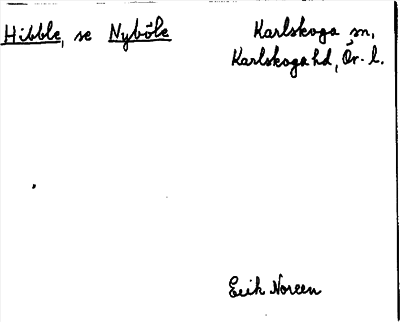 Hibble, se Nyböle
Karlskoga sn,
Karlskoga hd, Ör. l.
Erik Noreen